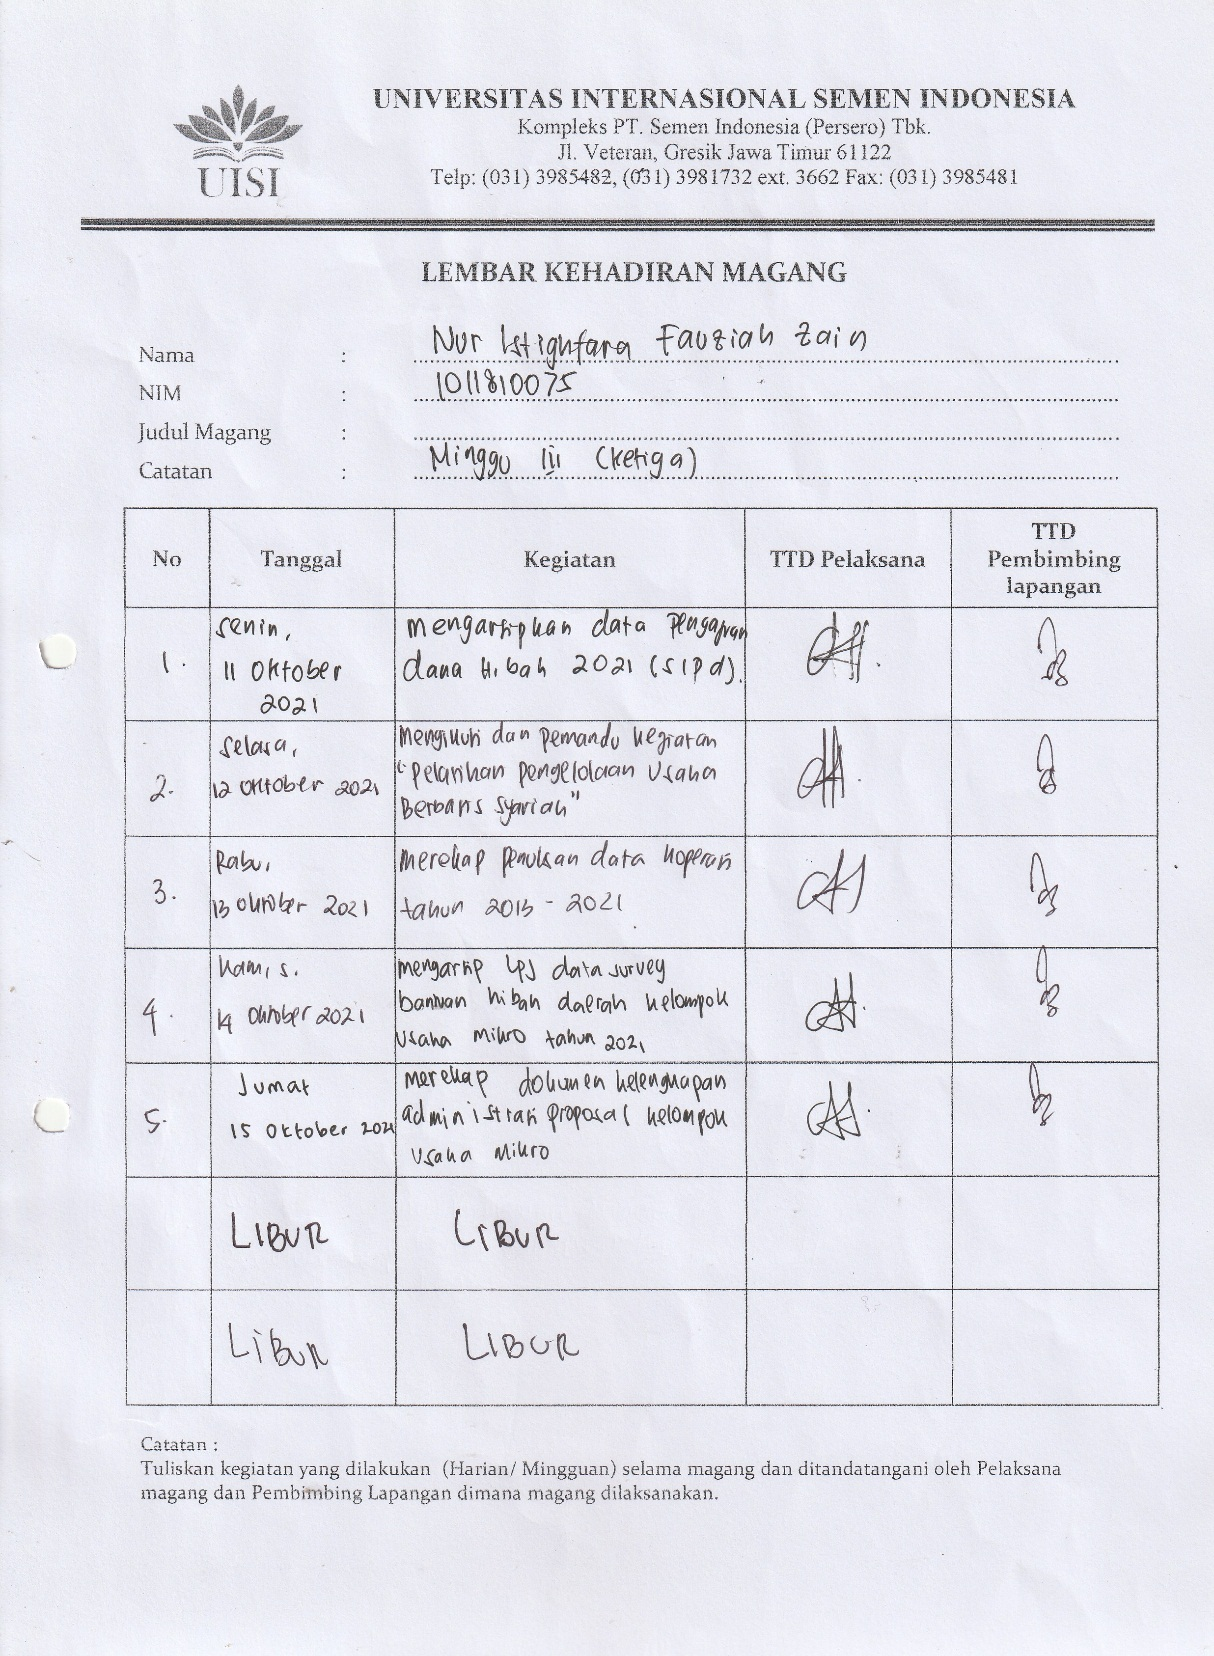 UNIVERSITAS INTERNASIONAL SEMEN INDONESIA
Kompleks PT. Semen Indonesia (Persero) Tbk.
Jl. Veteran, Gresik Jawa Timur 61122
Telp: (031) 3985482, (031) 3981732 ext. 3662 Fax: (031) 3985481
UISI
LEMBAR KEHADIRAN MAGANG
Nama : Nur Istighfara Fauziah Zain
NIM : 1011810075
Judul Magang :
Catatan : Minggu III (Ketiga)
No Tanggal Kegiatan TTD Pelaksana TTD Pembimbing lapangan
1. Senin, 11 Oktober 2021
mengarsipkan data pengajuan
dana Hibah 2021 (SIPd).
2. Selasa, 12 Oktober 2021
Mengikuti dan pemandu kegiatan
"pelatihan pengelolaan Usaha
Berbasis Syariah"
3. Rabu, 13 Oktober 2021
Merekap penulisan data koperasi
tahun 2013 - 2021
4. Kamis. 14 Oktober 2021
mengarsip LPJ data survey
bantuan hibah daerah kelompok
Usaha Mikro tahun 2021
5. Jumat 15 Oktober 2021
Merekap dokumen kelengkapan
administrasi proposal kelompok
Usaha Mikro
LIBUR LIBUR
LIBUR LIBUR
Catatan :
Tuliskan kegiatan yang dilakukan (Harian/ Mingguan) selama magang dan ditandatangani oleh Pelaksana
magang dan Pembimbing Lapangan dimana magang dilaksanakan.